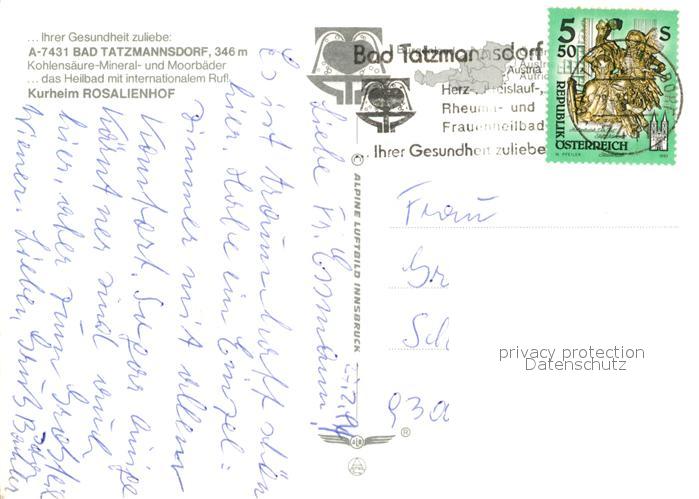 ... Ihrer Gesundheit zuliebe:
A-7431 BAD TATZMANNSDORF, 346 m
Kohlensäure-Mineral- und Moorbäder
... das Heilbad mit internationalem Ruf!
Kurheim ROSALIENHOF
Bad Tatzmannsdorf
Austria
Herz-, Kreislauf-,
Rheuma- und
Frauenheilbad
... Ihrer Gesundheit zuliebe
5 50 S
REPUBLIK
ÖSTERREICH
ALPINE LUFTBILD INNSBRUCK
®
Liebe Fr.
Es ist traumhaft schön
hier. Habe ein Einzel=
zimmer mit allem
Komfort. Sogar einige
Kärntner sind auch
hier, aber zum Großteil
Wiener. Liebe Grüße
Frau
Gr
Sch
930
privacy protection
Datenschutz